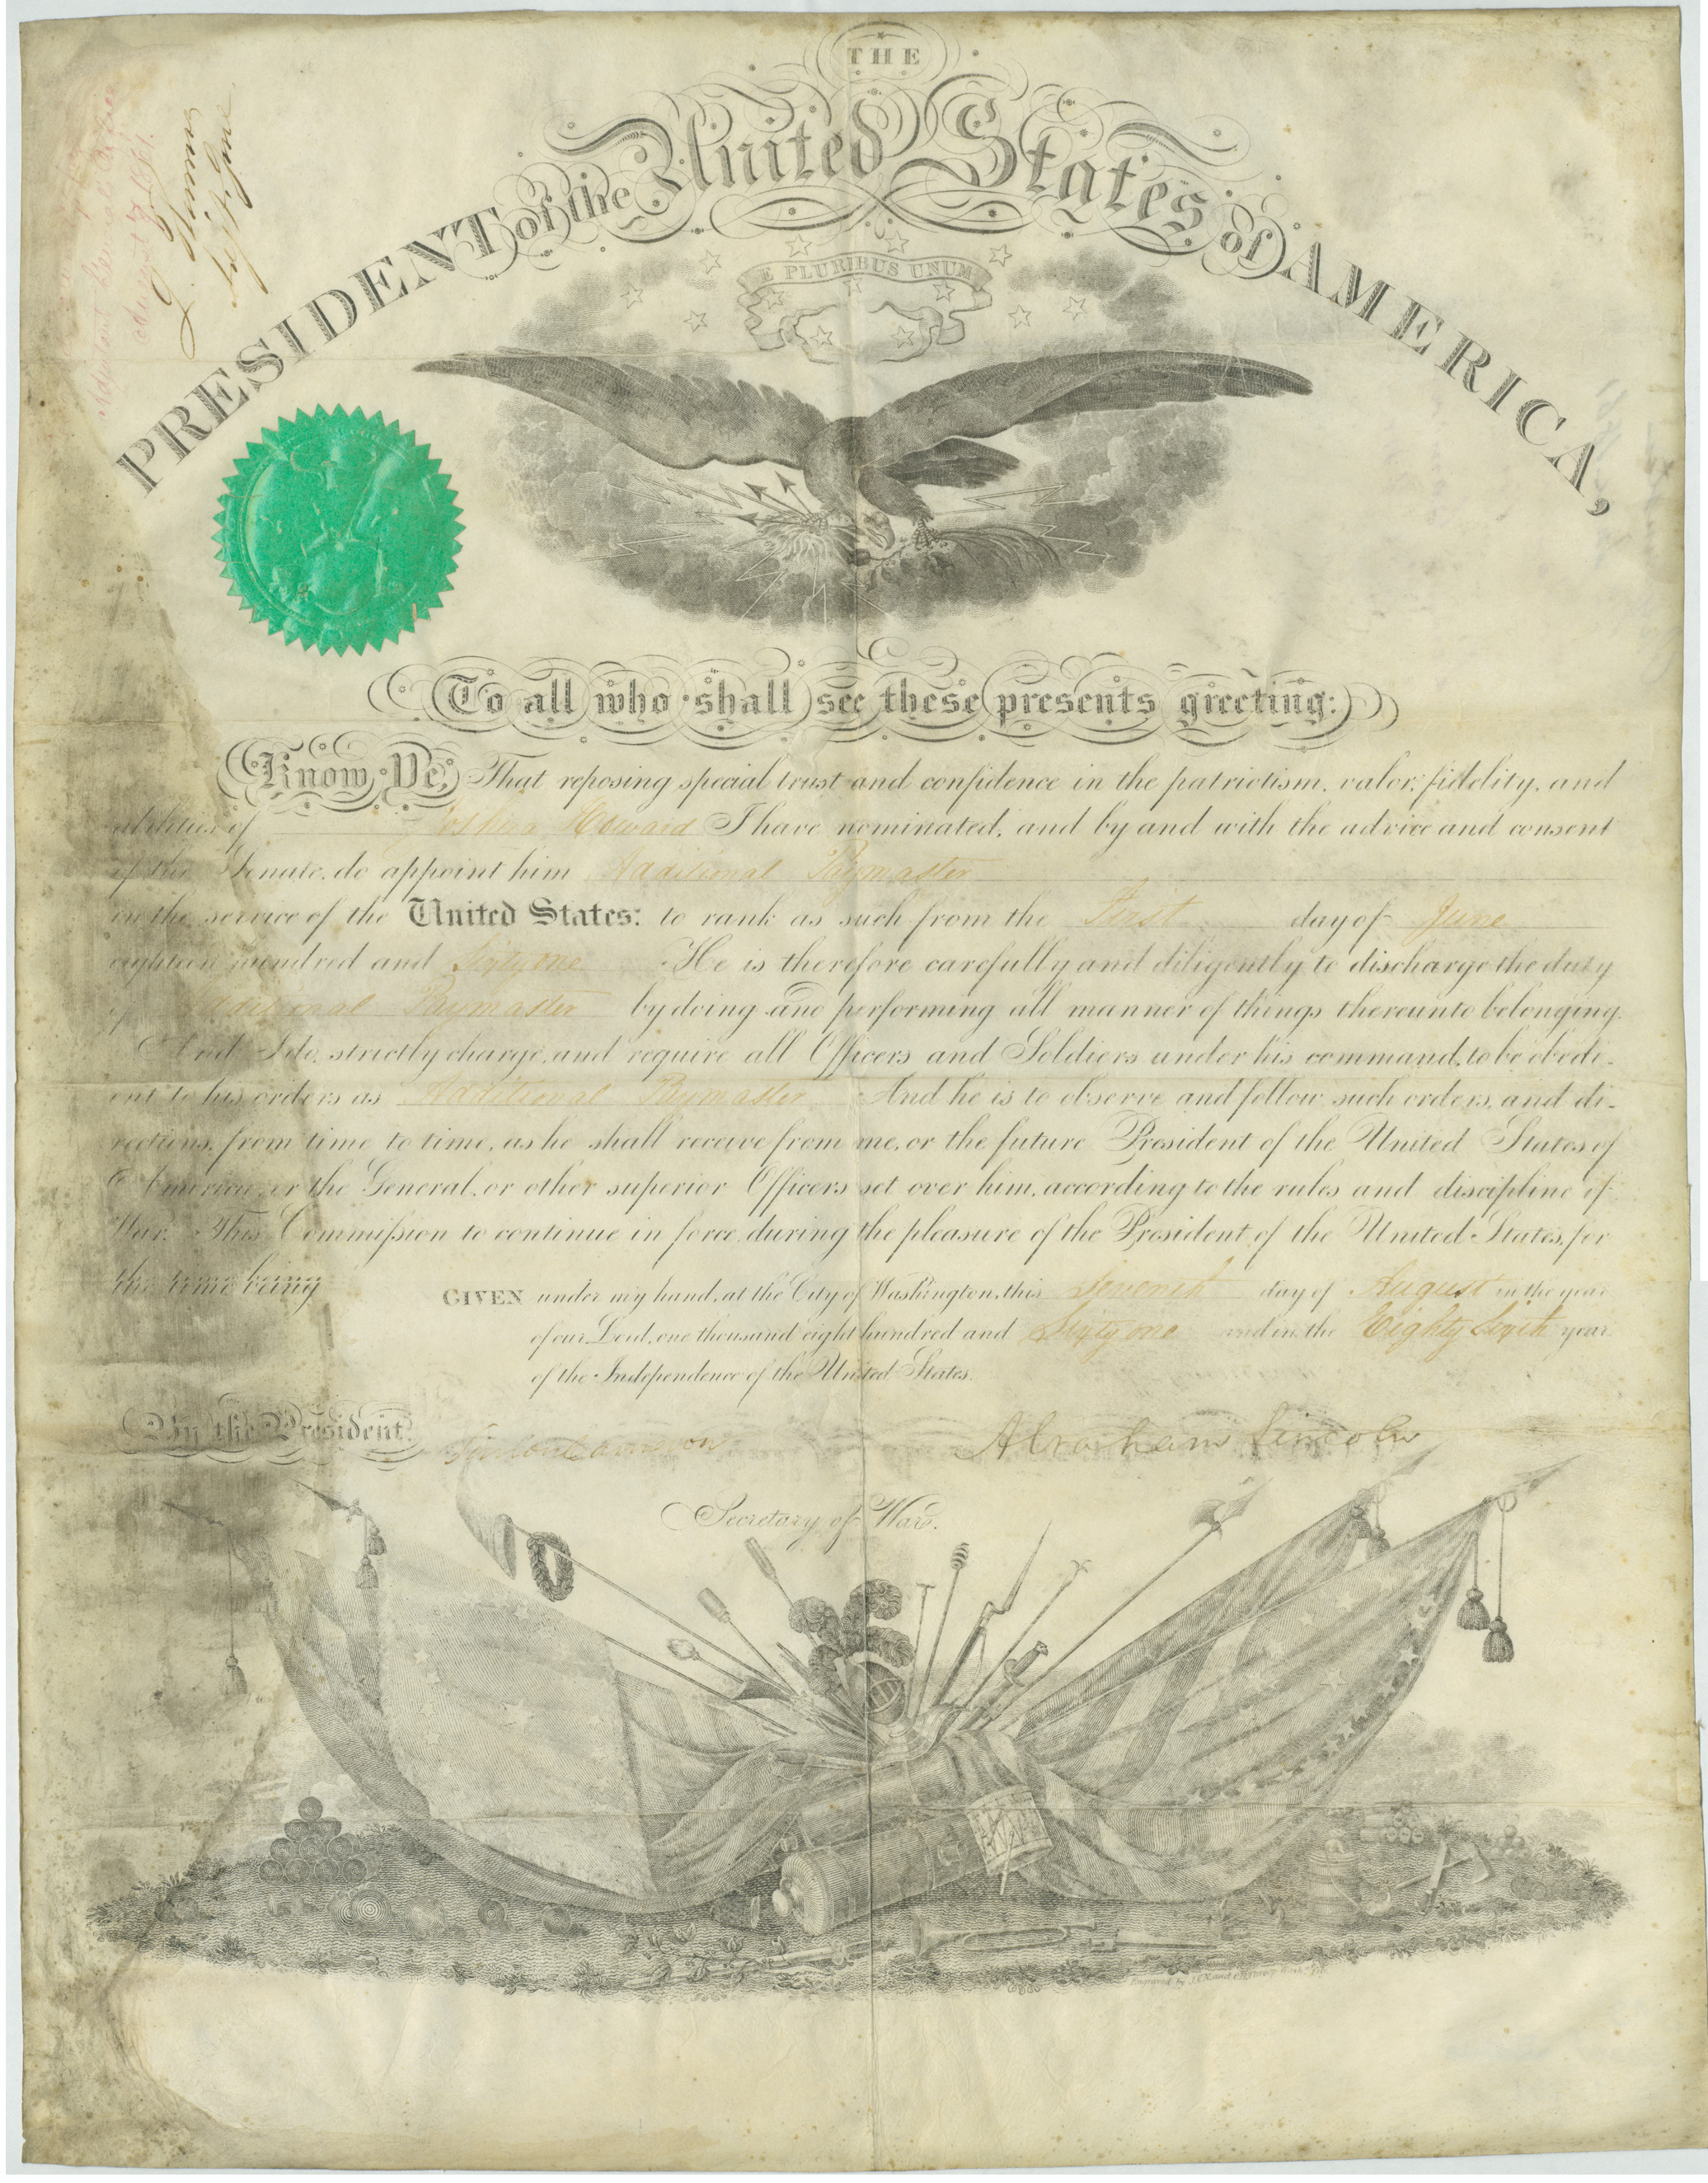 THE
PRESIDENT of the United States of AMERICA,
E PLURIBUS UNUM
To all who shall see these presents greeting:
Know Ye, That reposing special trust and confidence in the patriotism, valor, fidelity, and
abilities of Joshua Howard I have nominated, and by and with the advice and consent
of the Senate, do appoint him Additional Paymaster
in the service of the United States: to rank as such from the First day of June
eighteen hundred and Sixty one He is therefore carefully and diligently to discharge the duty
of Additional Paymaster by doing and performing all manner of things thereunto belonging.
And I do, strictly charge, and require all Officers and Soldiers under his command, to be obedi-
ent to his orders as Additional Paymaster And he is to observe and follow such orders, and di-
rections, from time to time, as he shall receive from me, or the future President of the United States of
America, or the General, or other superior Officers set over him, according to the rules and discipline of
War. This Commission to continue in force, during the pleasure of the President of the United States, for
the time being
GIVEN under my hand, at the City of Washington, this Seventh day of August in the year
of our Lord, one thousand eight hundred and Sixty one and in the Eighty Sixth year
of the Independence of the United States.
By the President,
Simon Cameron
Abraham Lincoln
Secretary of War.
Adjutant General's Office
August 1861.
Engraved by